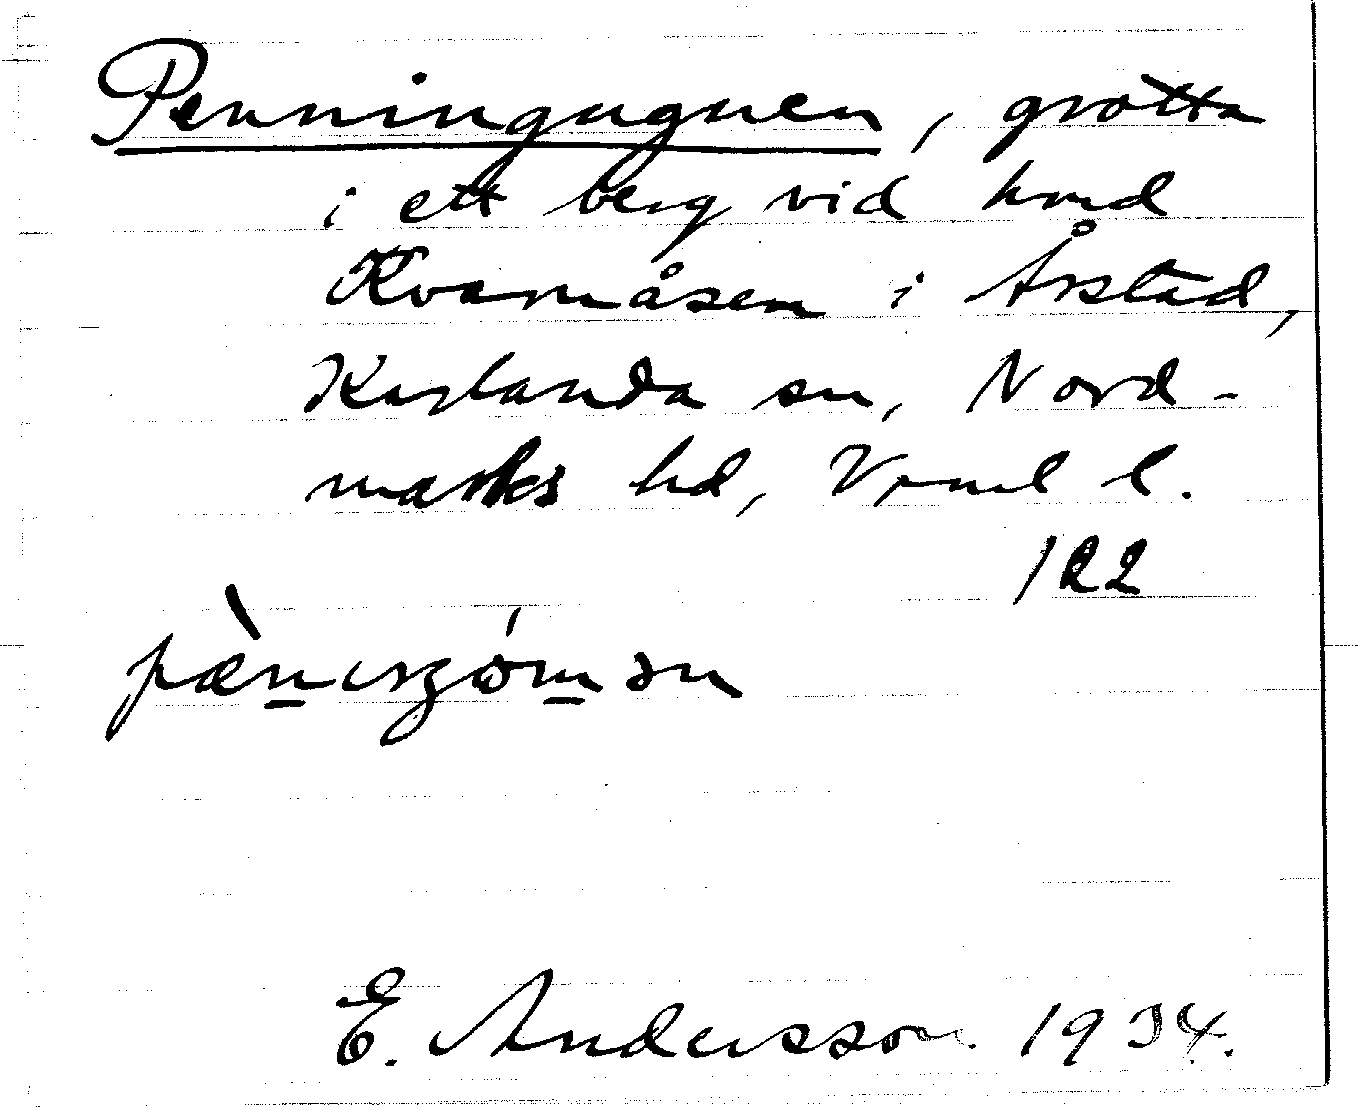 Penningugnen, grotta
i ett berg vid hmd
Kvarnåsen i Årstad,
Karlanda sn, Nord-
marks hd, Vrml l.
122
E. Andersson 1934.